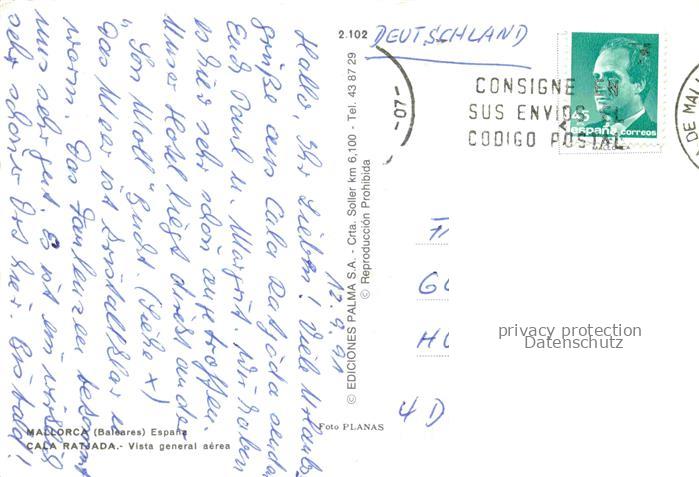 Hallo, Ihr Lieben! Viele Urlaubs-
grüße aus Cala Ratjada sendet
Euch Paul u. Margrit. Wir haben
es hier sehr schön angetroffen.
Unser Hotel liegt direkt an der
"Son Moll" Bucht. (Siehe x)
Das Meer ist kristallklar u.
warm. Das Faulenzen bekommt
uns sehr gut. Es ist ein wirklich
sehr schöner Ort hier. Bis bald!
12.9.91
MALLORCA (Baleares) España
CALA RATJADA.- Vista general aérea
© EDICIONES PALMA S.A. - Crta. Soller km 6,100 - Tel. 43 87 29
© Reproducción Prohibida
2.102
Foto PLANAS
DEUTSCHLAND
-07-
CONSIGNE EN
SUS ENVIOS EL
CODIGO POSTAL
45
españa correos
DE MALL
F
GO
HO
4 D
privacy protection
Datenschutz